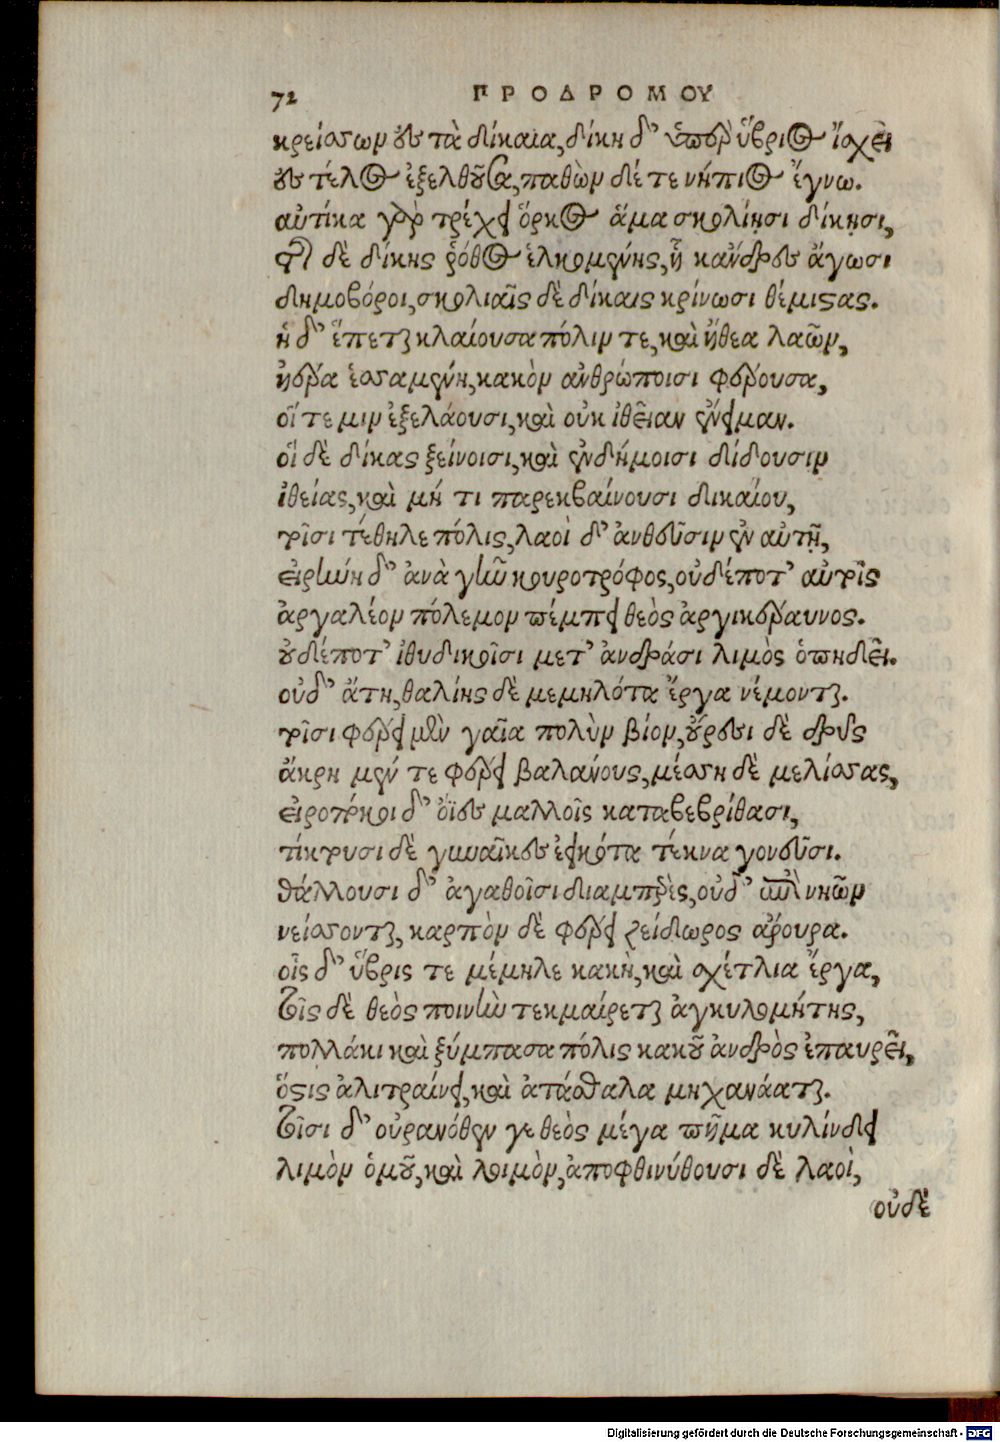 72 ΠΡΟΔΡΟΜΟΥ
κρείσσων ἐς τὰ δίκαια, δίκη δ' ὑπὲρ ὕβριος ἴσχει
ἐς τέλος ἐξελθοῦσα, παθὼν δέ τε νήπιος ἔγνω.
αὐτίκα γὰρ τρέχει ὅρκος ἅμα σκολίῃσι δίκῃσι,
τῆς δὲ δίκης ῥόθος ἑλκομένης, ᾗ κἄνδρες ἄγωσι
δημοβόροι, σκολιαῖς δὲ δίκαις κρίνωσι θέμιστας.
ἡ δ' ἕπεται κλαίουσα πόλιν τε, καὶ ἤθεα λαῶν,
ἠέρα ἑσσαμένη, κακὸν ἀνθρώποισι φέρουσα,
οἵ τε μιν ἐξελάουσι, καὶ οὐκ ἰθεῖαν ἔνειμαν.
οἳ δὲ δίκας ξείνοισι, καὶ ἐνδήμοισι δίδουσιν
ἰθείας, καὶ μή τι παρεκβαίνουσι δικαίου,
τοῖσι τέθηλε πόλις, λαοὶ δ' ἀνθεῦσιν ἐν αὐτῇ,
εἰρήνη δ' ἀνὰ γῆν κουροτρόφος, οὐδέποτ' αὐτοῖς
ἀργαλέον πόλεμον πέμπει θεὸς ἀργικέραυνος.
οὐδέποτ' ἰθυδίκοισι μετ' ἀνδράσι λιμὸς ὀπηδεῖ.
οὐδ' ἄτη, θαλίης δὲ μεμηλότα ἔργα νέμονται.
τοῖσι φέρει μὲν γαῖα πολὺν βίον, οὔρεσι δὲ δρῦς
ἄκρη μέν τε φέρει βαλάνους, μέσση δὲ μελίσσας,
εἰροπόκοι δ' ὄϊες μαλλοῖς καταβεβρίθασι,
τίκτουσι δὲ γυναῖκες ἐοικότα τέκνα γονεῦσι.
θάλλουσι δ' ἀγαθοῖσι διαμπερὲς, οὐδ' ἐπὶ νηῶν
νείσονται, καρπὸν δὲ φέρει ζείδωρος ἄρουρα.
οἷς δ' ὕβρις τε μέμηλε κακὴ, καὶ σχέτλια ἔργα,
τοῖς δὲ θεὸς ποινὴν τεκμαίρεται ἀγκυλομήτης,
πολλάκι καὶ ξύμπασα πόλις κακοῦ ἀνδρὸς ἐπαυρεῖ,
ὅστις ἀλιτραίνει, καὶ ἀτάσθαλα μηχανάαται.
τοῖσι δ' οὐρανόθεν γε θεὸς μέγα πῆμα κυλίνδει
λιμὸν ὁμοῦ, καὶ λοιμὸν, ἀποφθινύθουσι δὲ λαοὶ,
οὐδὲ
Digitalisierung gefördert durch die Deutsche Forschungsgemeinschaft - DFG